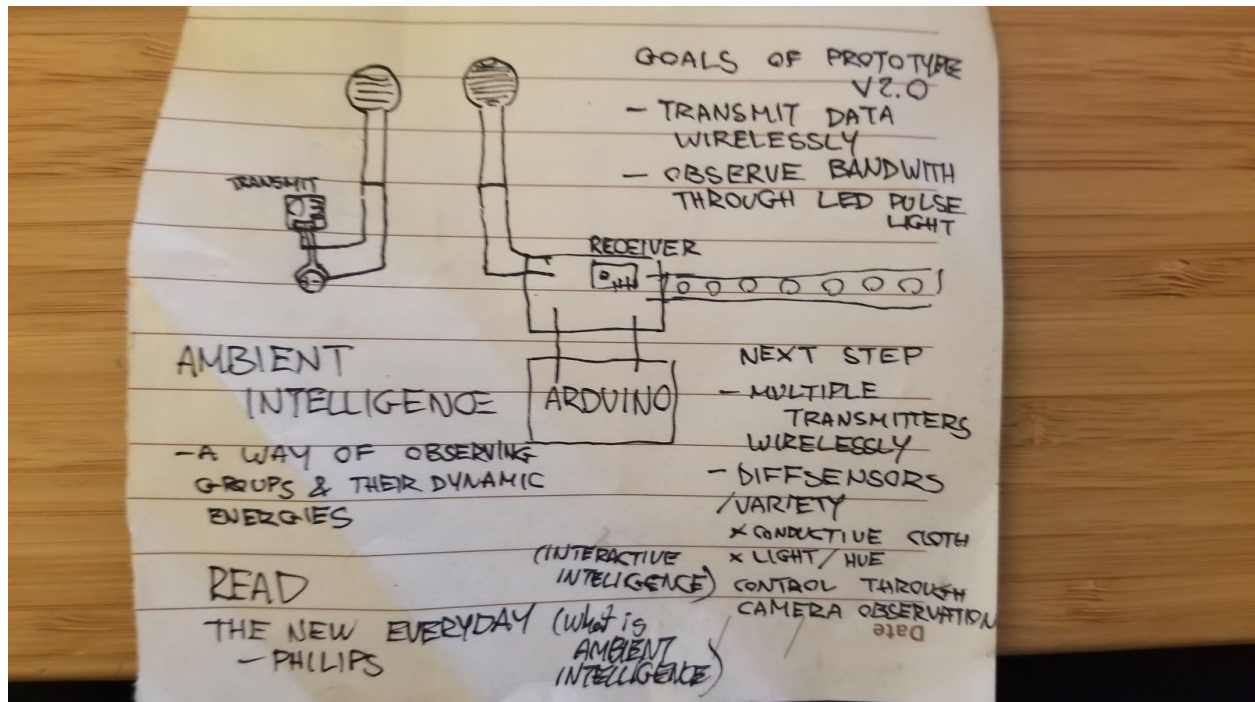 GOALS OF PROTOTYPE
V2.0
- TRANSMIT DATA
WIRELESSLY
- OBSERVE BANDWITH
THROUGH LED PULSE
LIGHT
TRANSMIT
RECEIVER
ARDUINO
AMBIENT
INTELLIGENCE
- A WAY OF OBSERVING
GROUPS & THEIR DYNAMIC
ENERGIES
NEXT STEP
- MULTIPLE
TRANSMITTERS
WIRELESSLY
- DIFFSENSORS
/VARIETY
x CONDUCTIVE CLOTH
x LIGHT/HUE
CONTROL THROUGH
CAMERA OBSERVATION
READ
THE NEW EVERYDAY
- PHILIPS
(INTERACTIVE
INTELIGENCE)
(What is
AMBIENT
INTELLIGENCE)
Date